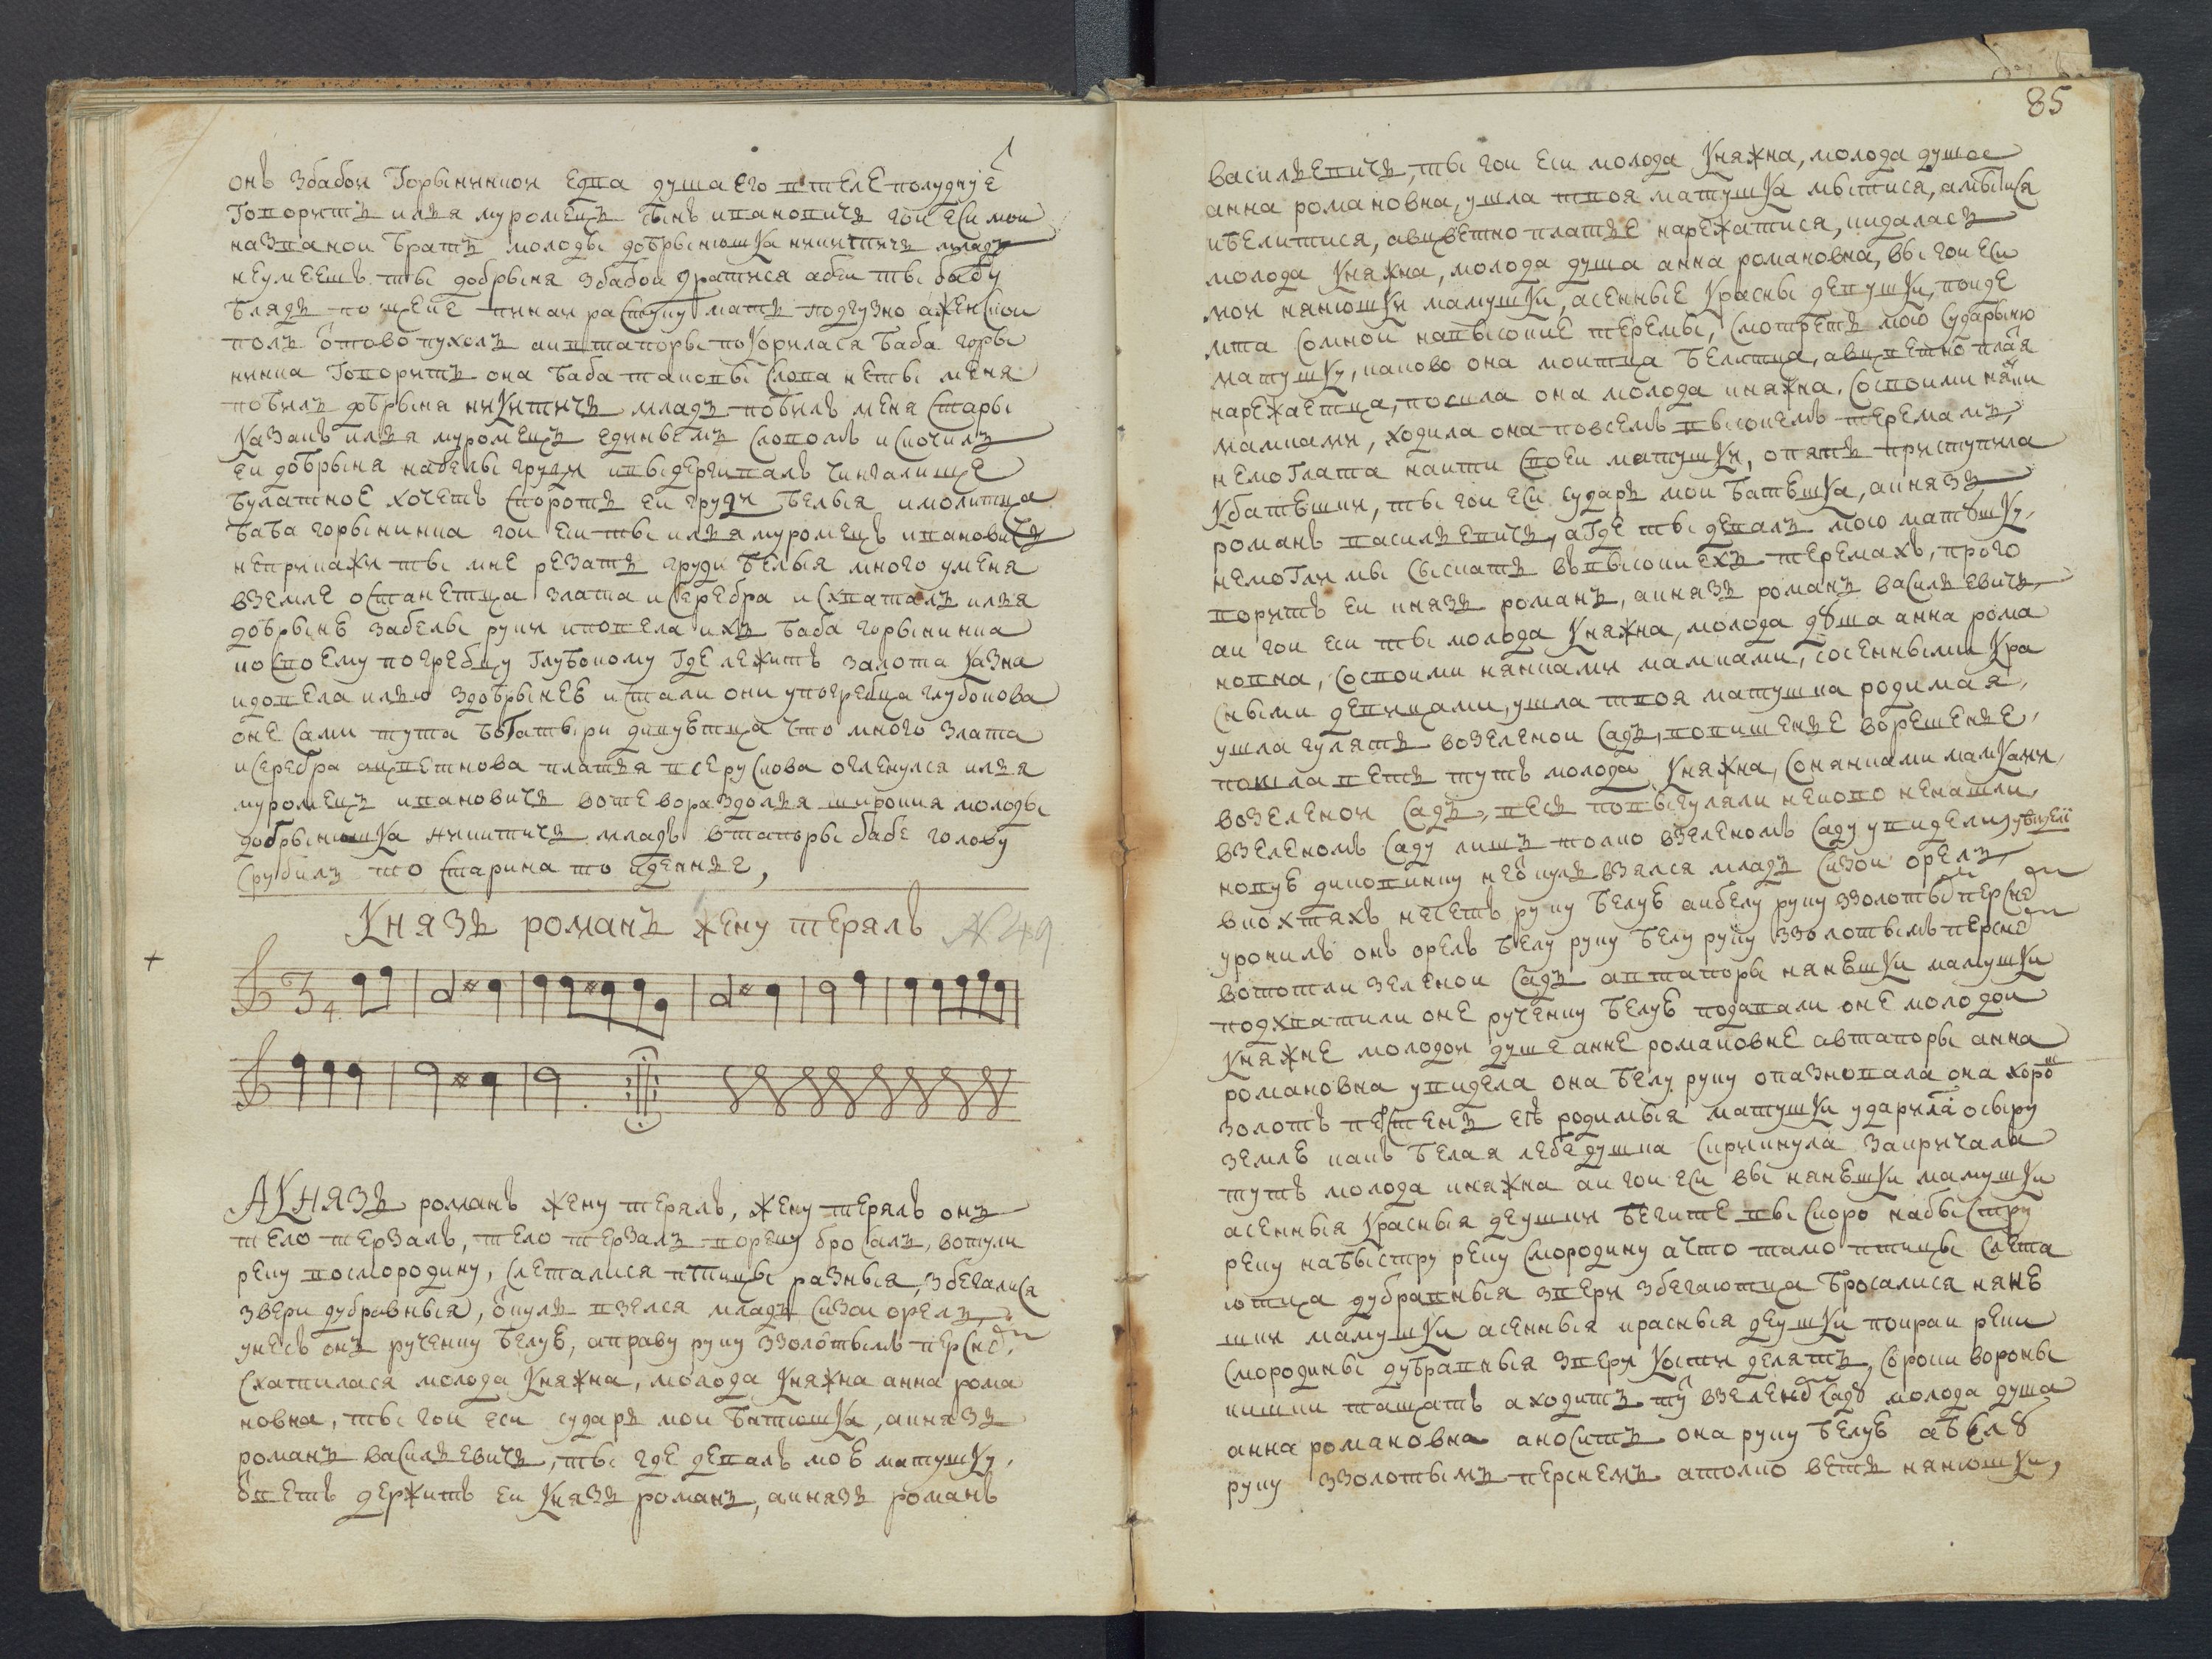 онъ збабои Горынинкои Едва душа его втеле полуднуе
Говоритъ илья муромецъ сынъ ивановичь гои еси мои
названои братъ молоды добрынюшка никитичь младъ
неумеешь ты добрыня збабои дратися абеи ты бабу
блядь по щеке пинаи растуку мать подгузно аженскои
полъ отово пухолъ аивтапоры покорилася баба горы
нинка Говоритъ она баба таковы слова неты меня
побилъ добрыня никитичь младъ побилъ меня стары
казакъ илья муромецъ единыемъ словомъ искочилъ
еи добрыня набелы груди ивыдергивалъ чингалище
булатное хочетъ споротъ еи груди белыя имолитца
баба горынинка гои еси ты илья муромецъ ивановичь
неприкажи ты мне резать груди белыя много уменя
вземле останетца злата исеребра исхваталъ илья
добрыне забелы руки иповела ихъ баба горынинка
ко своему погребцу глубокому где лежитъ залота казна
идовела илью здобрынеЕ истали они упогребца глубокова
оне сами тута богатыри дивуютца что много злата
исеребра ацветнова платья все рускова огленулся илья
муромецъ ивановичь воте вораздолья широкия молоды
добрынюшка никитичь младъ втапоры бабе голову
срубилъ то старина то идеянье,
Князь романъ жену терялъ N 49
+
3/4
АКнязь романъ жену терялъ, жену терялъ онъ
тело терзалъ, тело терзалъ вореку бросалъ, вотули
реку восмородину, слеталися птицы разныя, збегалися
звери дубравныя, откуль взелся младъ сизои орелъ
унесъ онъ рученку белуЕ, аправу руку ззолотымъ перснем,
Схатилася молода Княжна, молода Княжна анна рома
новна, ты гои еси сударь мои батюшка, акнязь
романъ васильевичь, ты где девалъ мою матушку,
ответъ держитъ еи Князь романъ, акнязь романъ
85
васильевичь, ты гои еси молода Княжна, молода душа
анна романовна, ушла твоя матушка мытися, амытися
ибелитися, авцветно платье нарежатися, кидалась
молода Княжна, молода душа анна романовна, вы гои еси
мои нянюшки мамушки, асенные красны девушки, поиде
мта сомнои навысокие теремы, смотреть мою сударыню
матушку, каково она моитца белитца, авцветно платя
нарежаетца, пошла она молода княжна. сосвоими няни
мамками, ходила она повсемъ высокемъ теремамъ,
немоглата наити своеи матушки, опять приступила
Кбатюшки, ты гои еси сударь мои батюшка, акнязь
романъ васильевичь, аГде ты девалъ мою матушку,
немогли мы сыскать въвысокиехъ теремахъ, прого
воритъ еи князь романъ, акнязь романъ васильевичь,
аи гои еси ты молода Княжна, молода душа анна рома
новна, сосвоими нянками мамками, сосенными кра
сными девицами, ушла твоя матушка родимая,
ушла гулять возеленои садъ, вовишенье ворешенье,
пошла веть тутъ молода Княжна, сонянками мамками,
возеленои садъ, весь повыгуляли неково ненашли,
взеленомъ саду лишъ толко взеленомъ саду увидели
новуЕ диковинку неоткуль взялся младъ сизои орелъ
вкохтяхъ несетъ руку белуЕ аибелу руку ззолотым перснем
уронилъ онъ орелъ белу руку белу руку ззолотымъ перснем
вототли зеленои садъ автапоры нянюшки мамушки
подхватили оне рученку белуЕ подавали оне молодои
Княжне молодои душе анне романовне автапоры анна
романовна увидела она белу руку опазновала она хорош
золотъ перстень еЕ родимыя матушки ударилась осыру
землю какъ белая лебедушка скрикнула закричала
тутъ молода княжна аи гои еси вы нянюшки мамушки
асенныя красныя деушки бегите вы скоро набыстру
реку набыстру реку смородину ачто тамо птицы слета
ютца дубравныя звери збегаютца бросалися няню
шки мамушки асенныя красныя деушки покраи реки
смородины дубравныя звери кости делятъ, сороки вороны
кишки тащатъ аходитъ тут взеленом саду молода душа
анна романовна аноситъ она руку белуЕ абелу
руку ззолотымъ перснемъ атолко веть нянюшки,